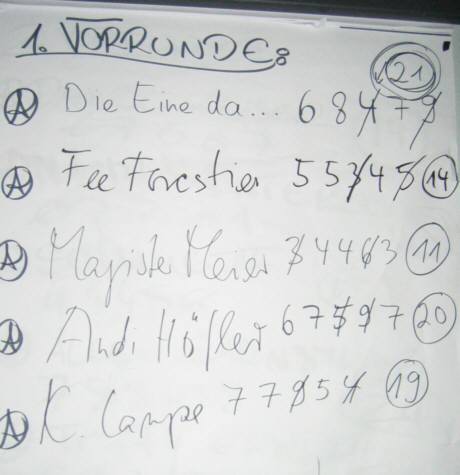 1. VORRUNDE:
Ⓐ Die Eine da... 6 8 4 7 9 21
Ⓐ Fee Forestier 5 5 3 4 5 14
Ⓐ Magister Meier 3 4 4 6 3 11
Ⓐ Andi Höfler 6 7 5 9 7 20
Ⓐ K. Campe 7 7 8 5 4 19